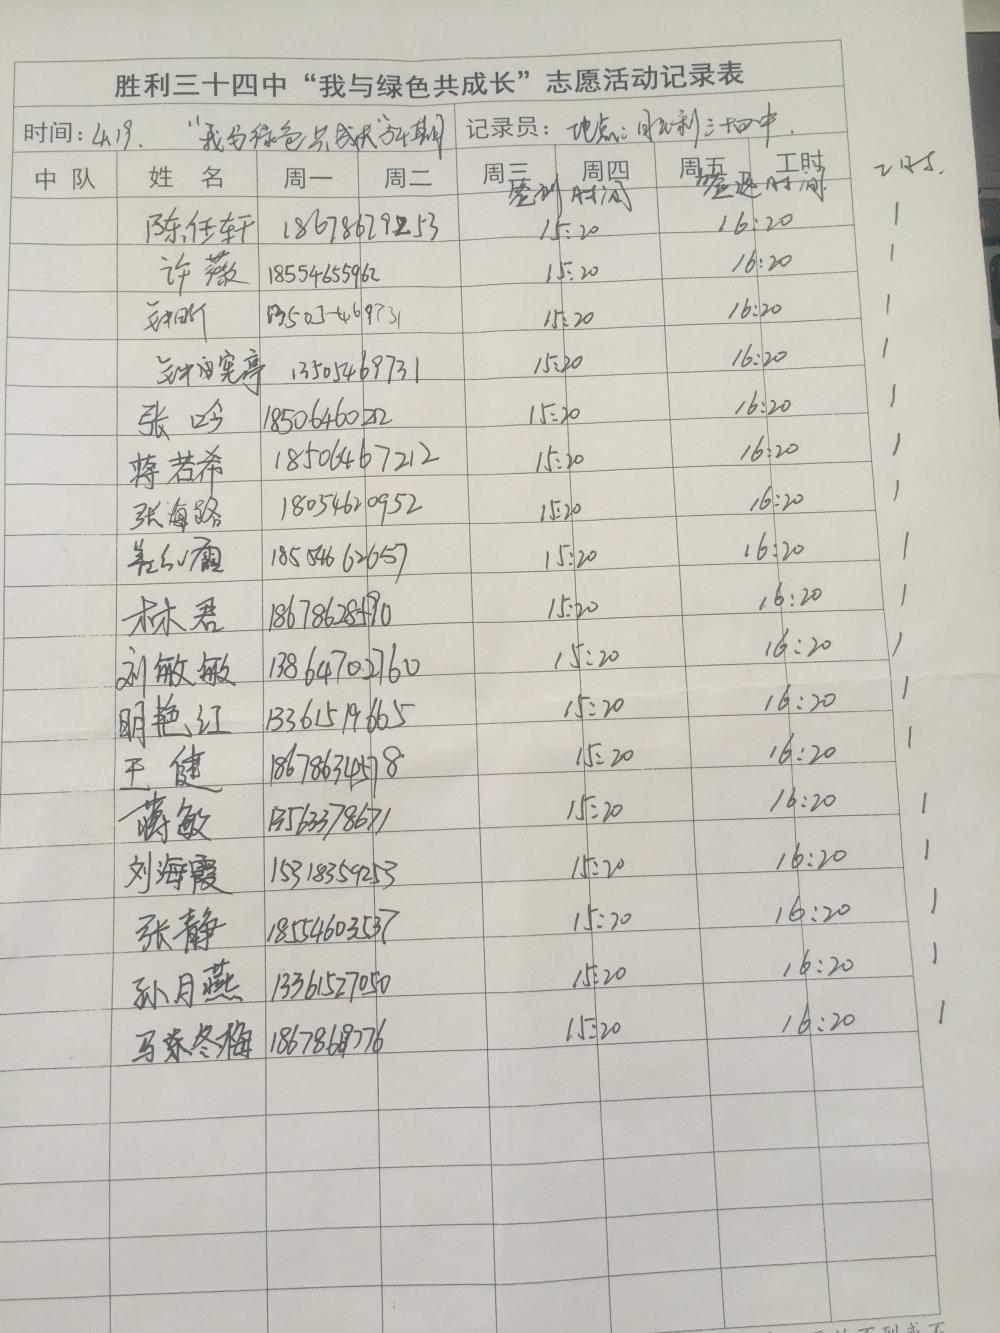 胜利三十四中“我与绿色共成长”志愿活动记录表
时间：4.19. “我与绿色共成长” 记录员： 地点：胜利三十四中.
中队 姓名 周一 周二 周三 周四 周五 工时
签到时间 签退时间 工时
陈任轩 18678679253 15:20 16:20 1
许薇 18554655962 15:20 16:20 1
13505469731 15:20 16:20 1
13505469731 15:20 16:20 1
张吟 15:20 16:20 1
蒋若希 18506467212 15:20 16:20 1
张海路 18054620952 15:20 16:20 1
18554662657 15:20 16:20 1
林君 15:20 16:20 1
刘敏敏 13864702760 15:20 16:20 1
明艳红 13361519665 15:20 16:20 1
王健 15:20 16:20 1
蒋敏 13563378671 15:20 16:20 1
刘海霞 15318359253 15:20 16:20 1
张静 18554603537 15:20 16:20 1
孙月燕 13361527050 15:20 16:20 1
马冬梅 15:20 16:20 1